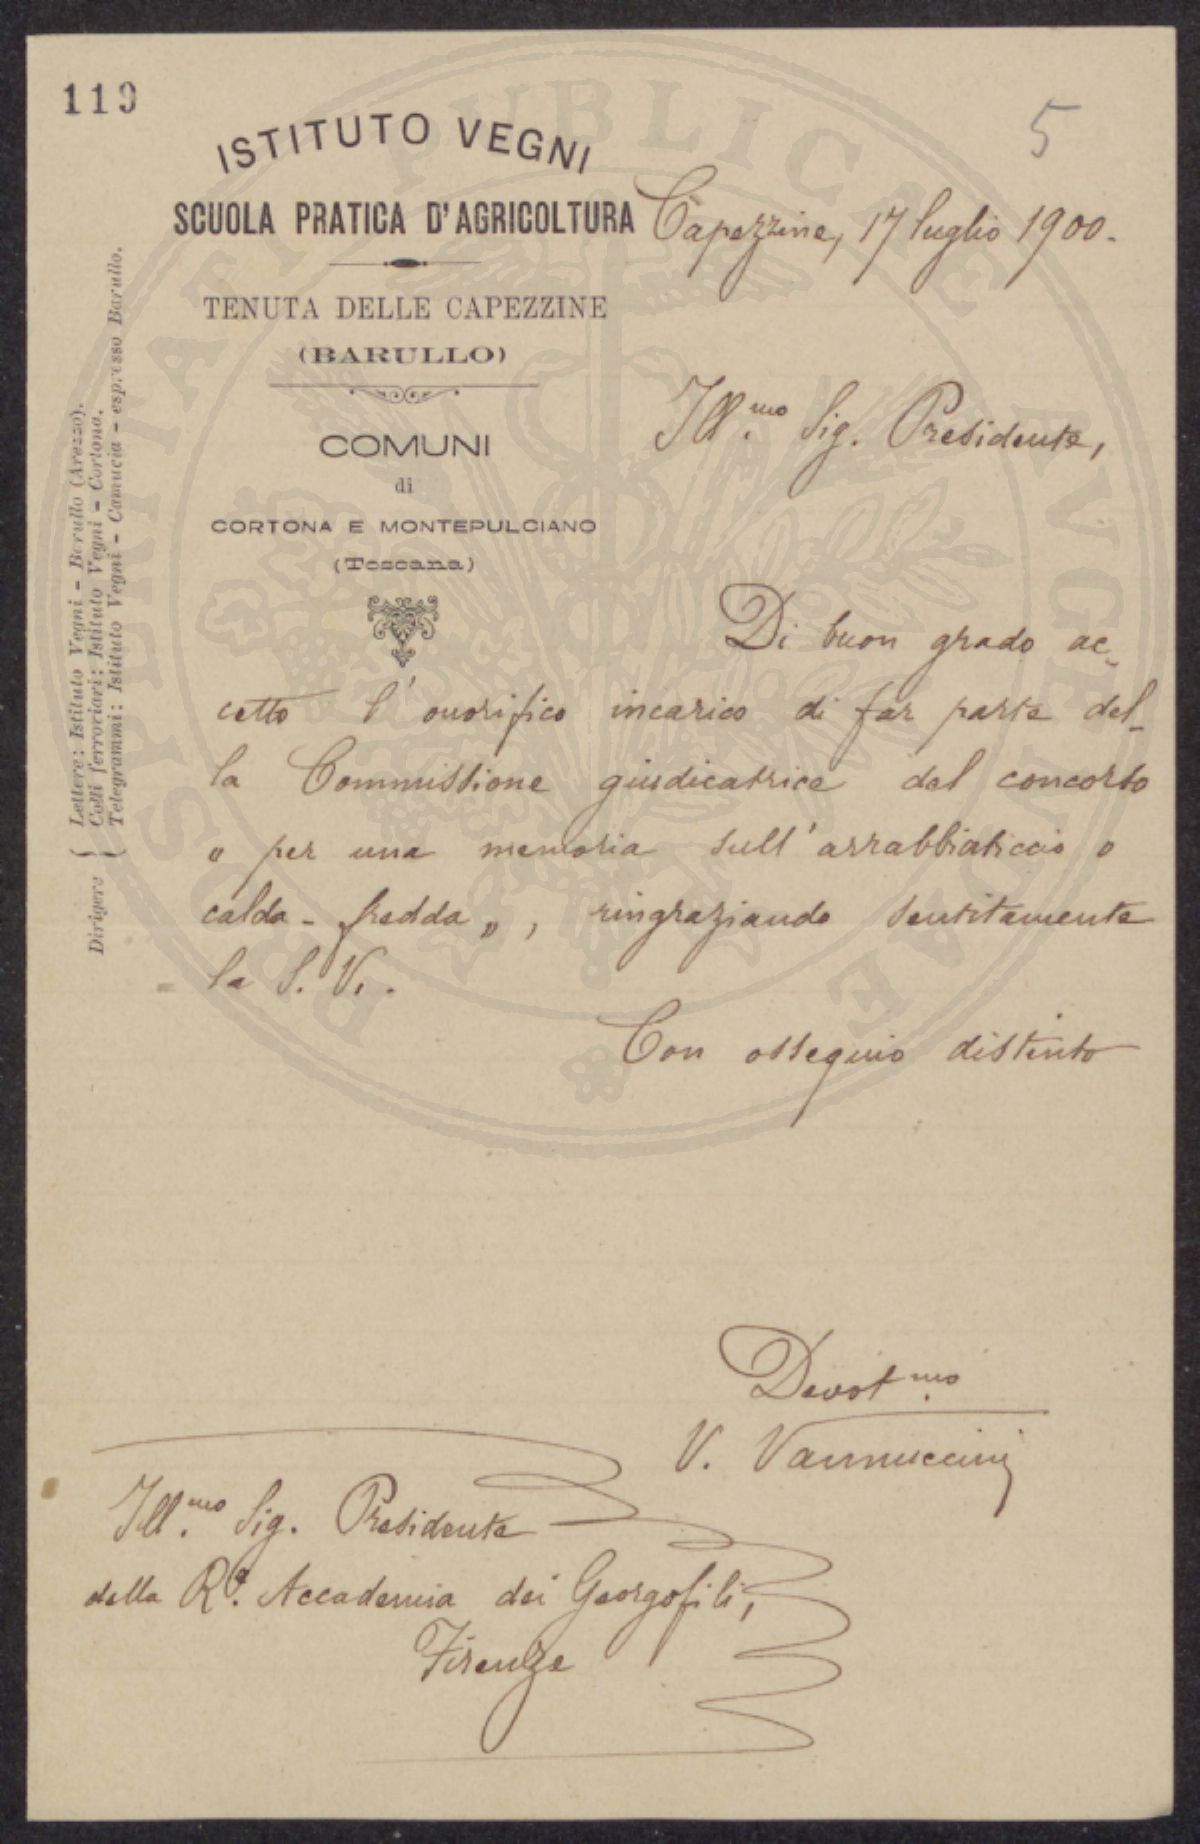 119
5
ISTITUTO VEGNI
SCUOLA PRATICA D'AGRICOLTURA
TENUTA DELLE CAPEZZINE
(BARULLO)
COMUNI
di
CORTONA E MONTEPULCIANO
(Toscana)
Dirigere { Lettere: Istituto Vegni - Barullo (Arezzo).
Colli ferroviari: Istituto Vegni - Cortona.
Telegrammi: Istituto Vegni - Camucia - espresso Barullo.
Capezzine, 17 luglio 1900.
Ill.mo Sig. Presidente,
Di buon grado ac-
cetto l'onorifico incarico di far parte del-
la Commissione giudicatrice del concorso
" per una memoria sull'arrabbiaticcio o
calda-fredda ", ringraziando sentitamente
la S. V..
Con ossequio distinto
Devot.mo
V. Vannuccini
Ill.mo Sig. Presidente
della R.a Accademia dei Georgofili,
Firenze
PROSPERITATI PUBLICAE AUGENDAE